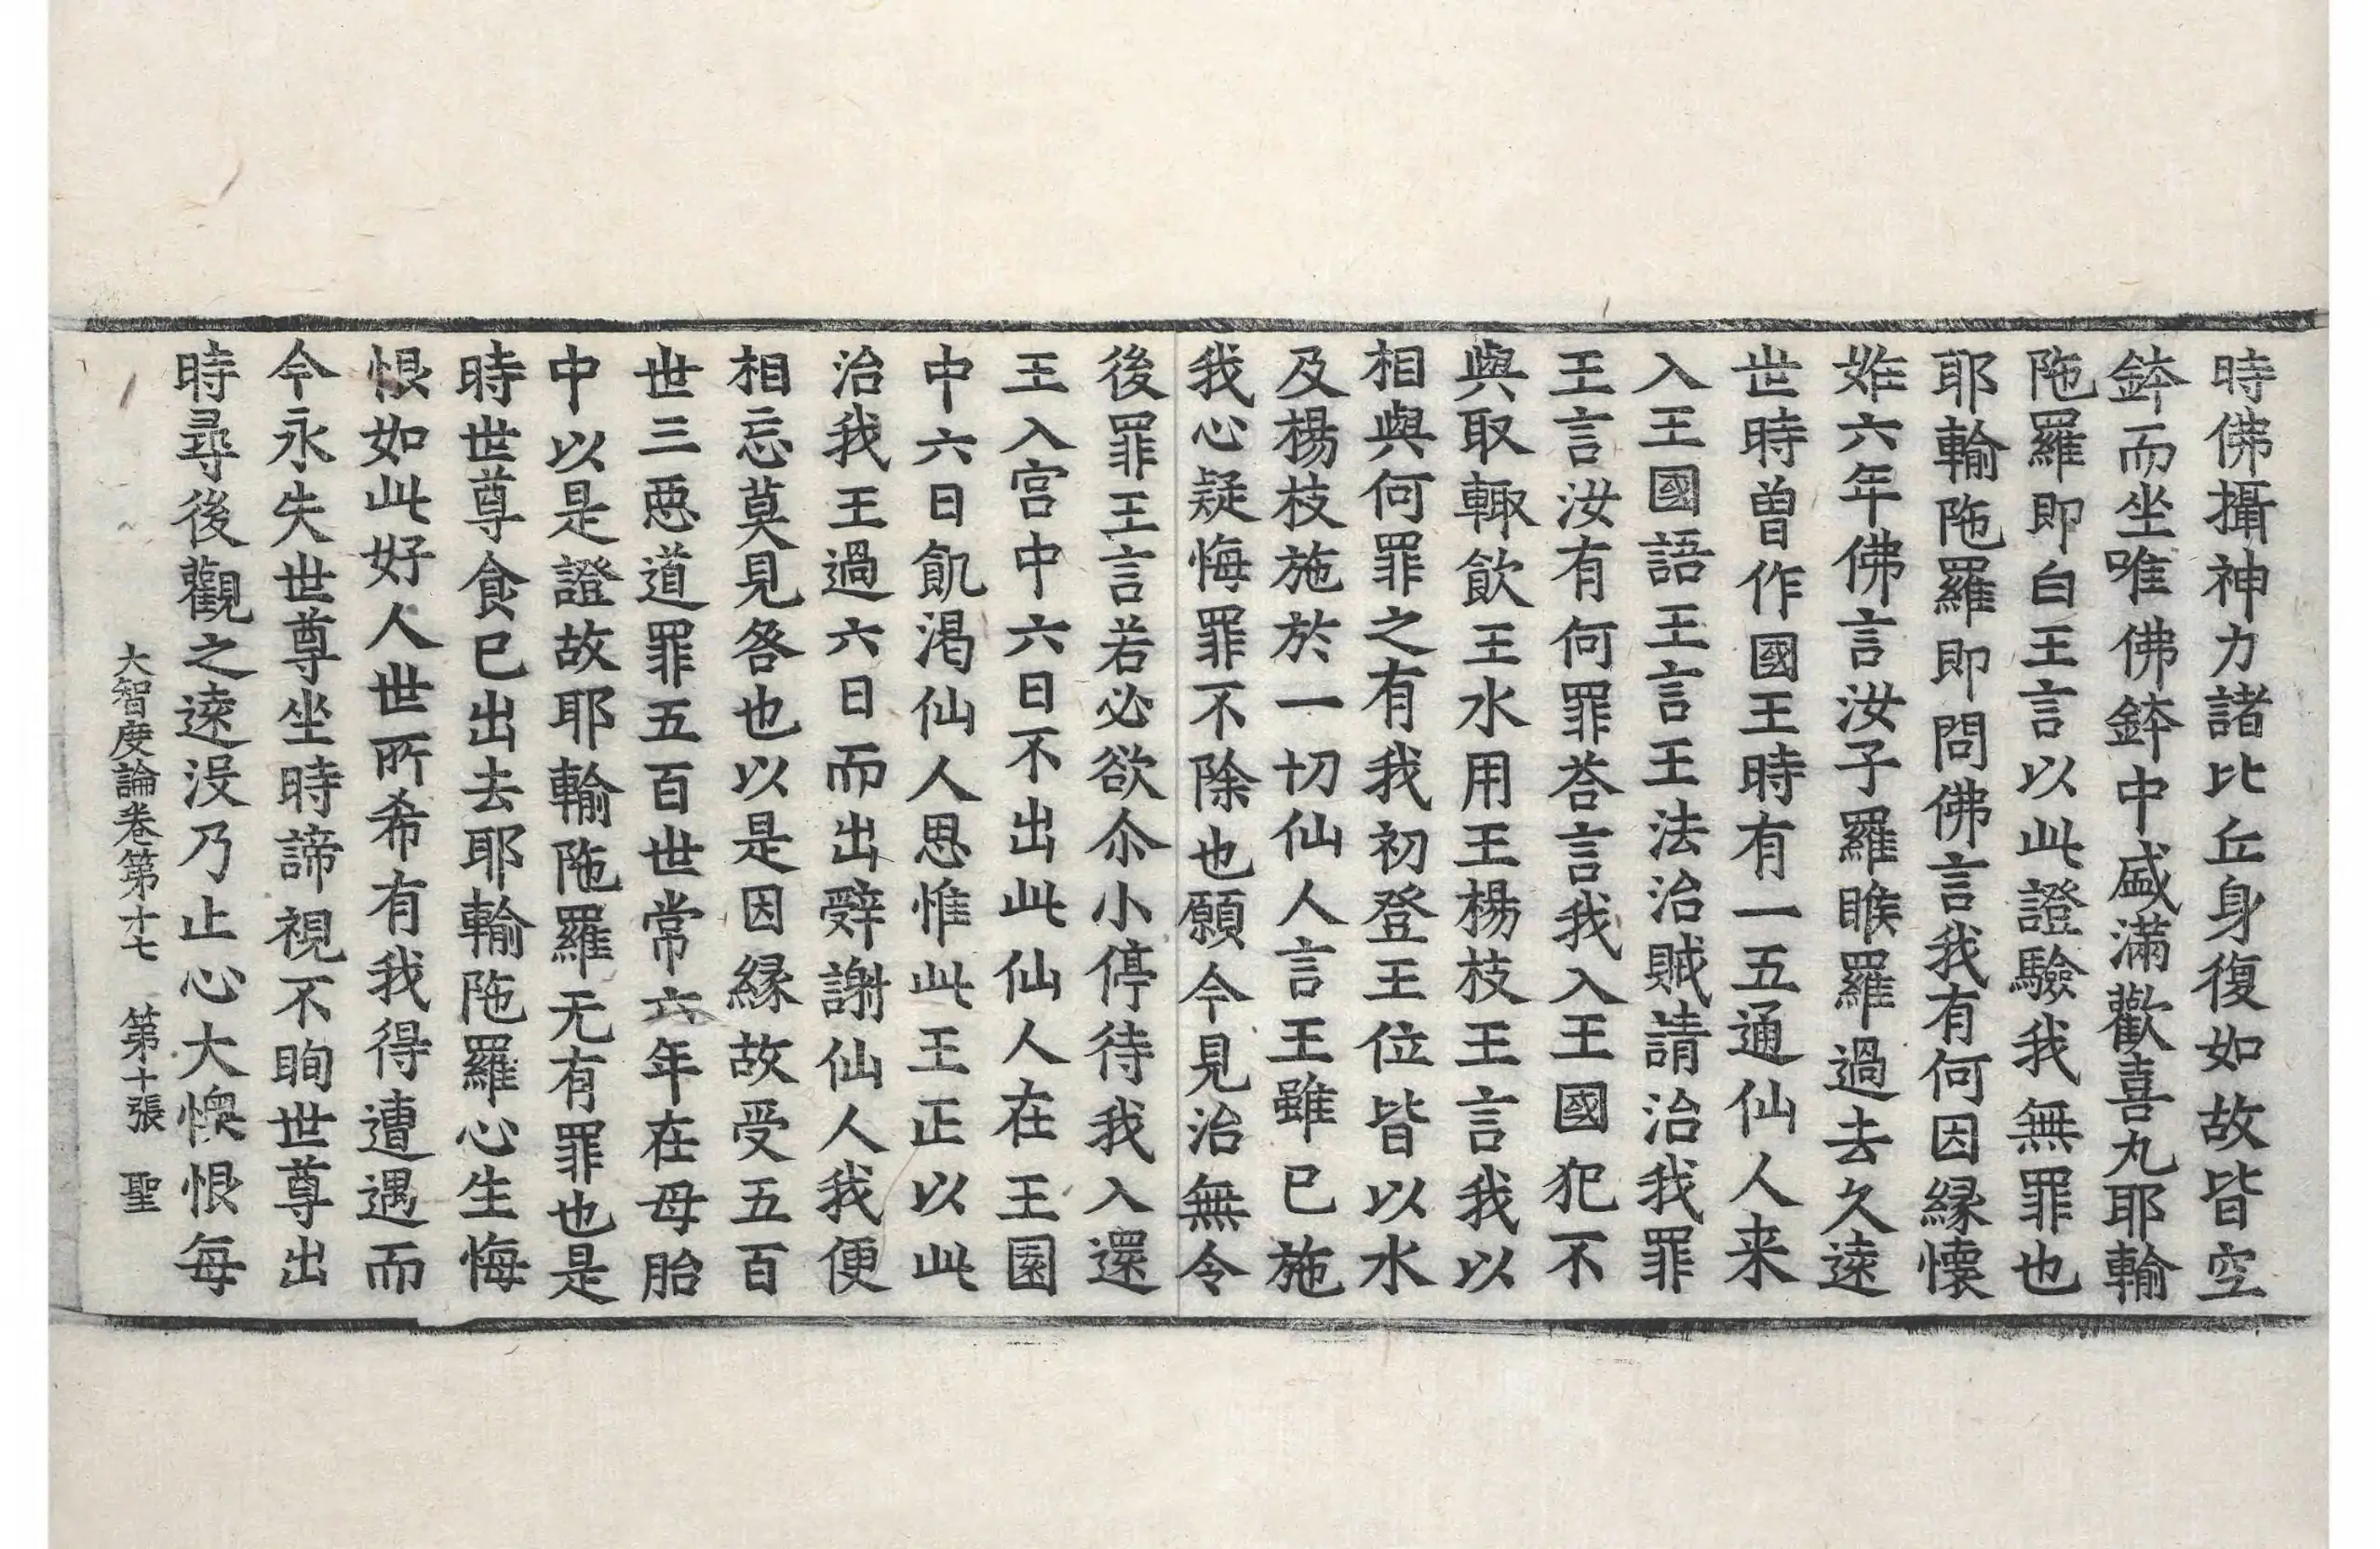 時佛攝神力諸比丘身復如故皆空
鉢而坐唯佛鉢中盛滿歡喜丸耶輸
陁羅即白王言以此證驗我無罪也
耶輸陁羅即問佛言我有何因縁懷
姙六年佛言汝子羅睺羅過去久遠
世時曽作國王時有一五通仙人来
入王國語王言王法治賊請治我罪
王言汝有何罪荅言我入王國犯不
與取輙飲王水用王楊枝王言我以
相與何罪之有我初登王位皆以水
及楊枝施於一切仙人言王雖已施
我心疑悔罪不除也願今見治無令
後罪王言若必欲尒小停待我入還
王入宮中六日不出此仙人在王園
中六日飢渴仙人思惟此王正以此
治我王過六日而出辝謝仙人我便
相忘莫見咎也以是因縁故受五百
世三惡道罪五百世常六年在母胎
中以是證故耶輸陁羅无有罪也是
時世尊食已出去耶輸陁羅心生悔
恨如此好人世所希有我得遭遇而
今永失世尊坐時諦視不眴世尊出
時尋後觀之遠没乃止心大懊恨每
大智度論卷第十七 第十張 聖